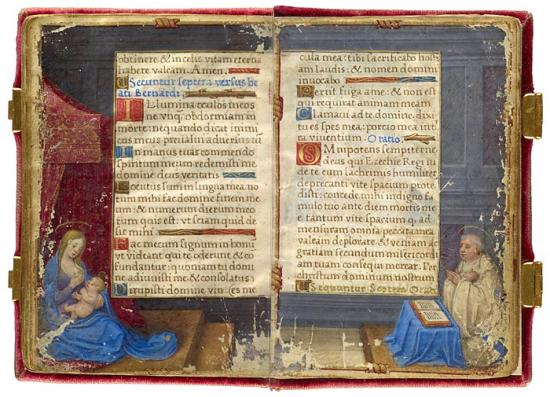 obtinere & in celis vitam eterna
habere valeam. Amen.
Secuntur septem versus be
ati Bernardi.
Illumina oculos meos
ne vnq obdormiam in
morte: nequando dicat inimi
cus meus preualui aduersus eu
In manus tuas commendo
spiritum meum: redemisti me
domine deus veritatis
Locutus sum in lingua mea: no
tum mihi fac domine finem me
um & numerum dierum meor
um quis est: vt sciam quid de
sit mihi
Fac mecum signum in bonu
vt videant qui me oderunt & co
fundantur: quoniam tu domi
ne adiuuisti me & consolatus
Dirupisti domine vin es me
cula mea: tibi sacrificabo hosti
am laudis: & nomen domini
inuocabo
Perijt fuga a me: & non est
qui requirat animam meam
Clamaui ad te domine: dixi
tu es spes mea: porcio mea in t
rra viuentium. Oratio.
Omnipotens sempiterne
deus qui Ezechie Regi iu
de te cum lachrimis humiliter
deprecanti vite spacium prote
disti: concede mihi indigno fa
mulo tuo ante diem mortis me
e tantum vite spacium q ad
mensuram omnia peccata mea
valeam deplorare: & veniam ac
gratiam secundum misericordi
am tuam consequi merear. Per
christum dominum nostrum
Sequantur Septem Orati